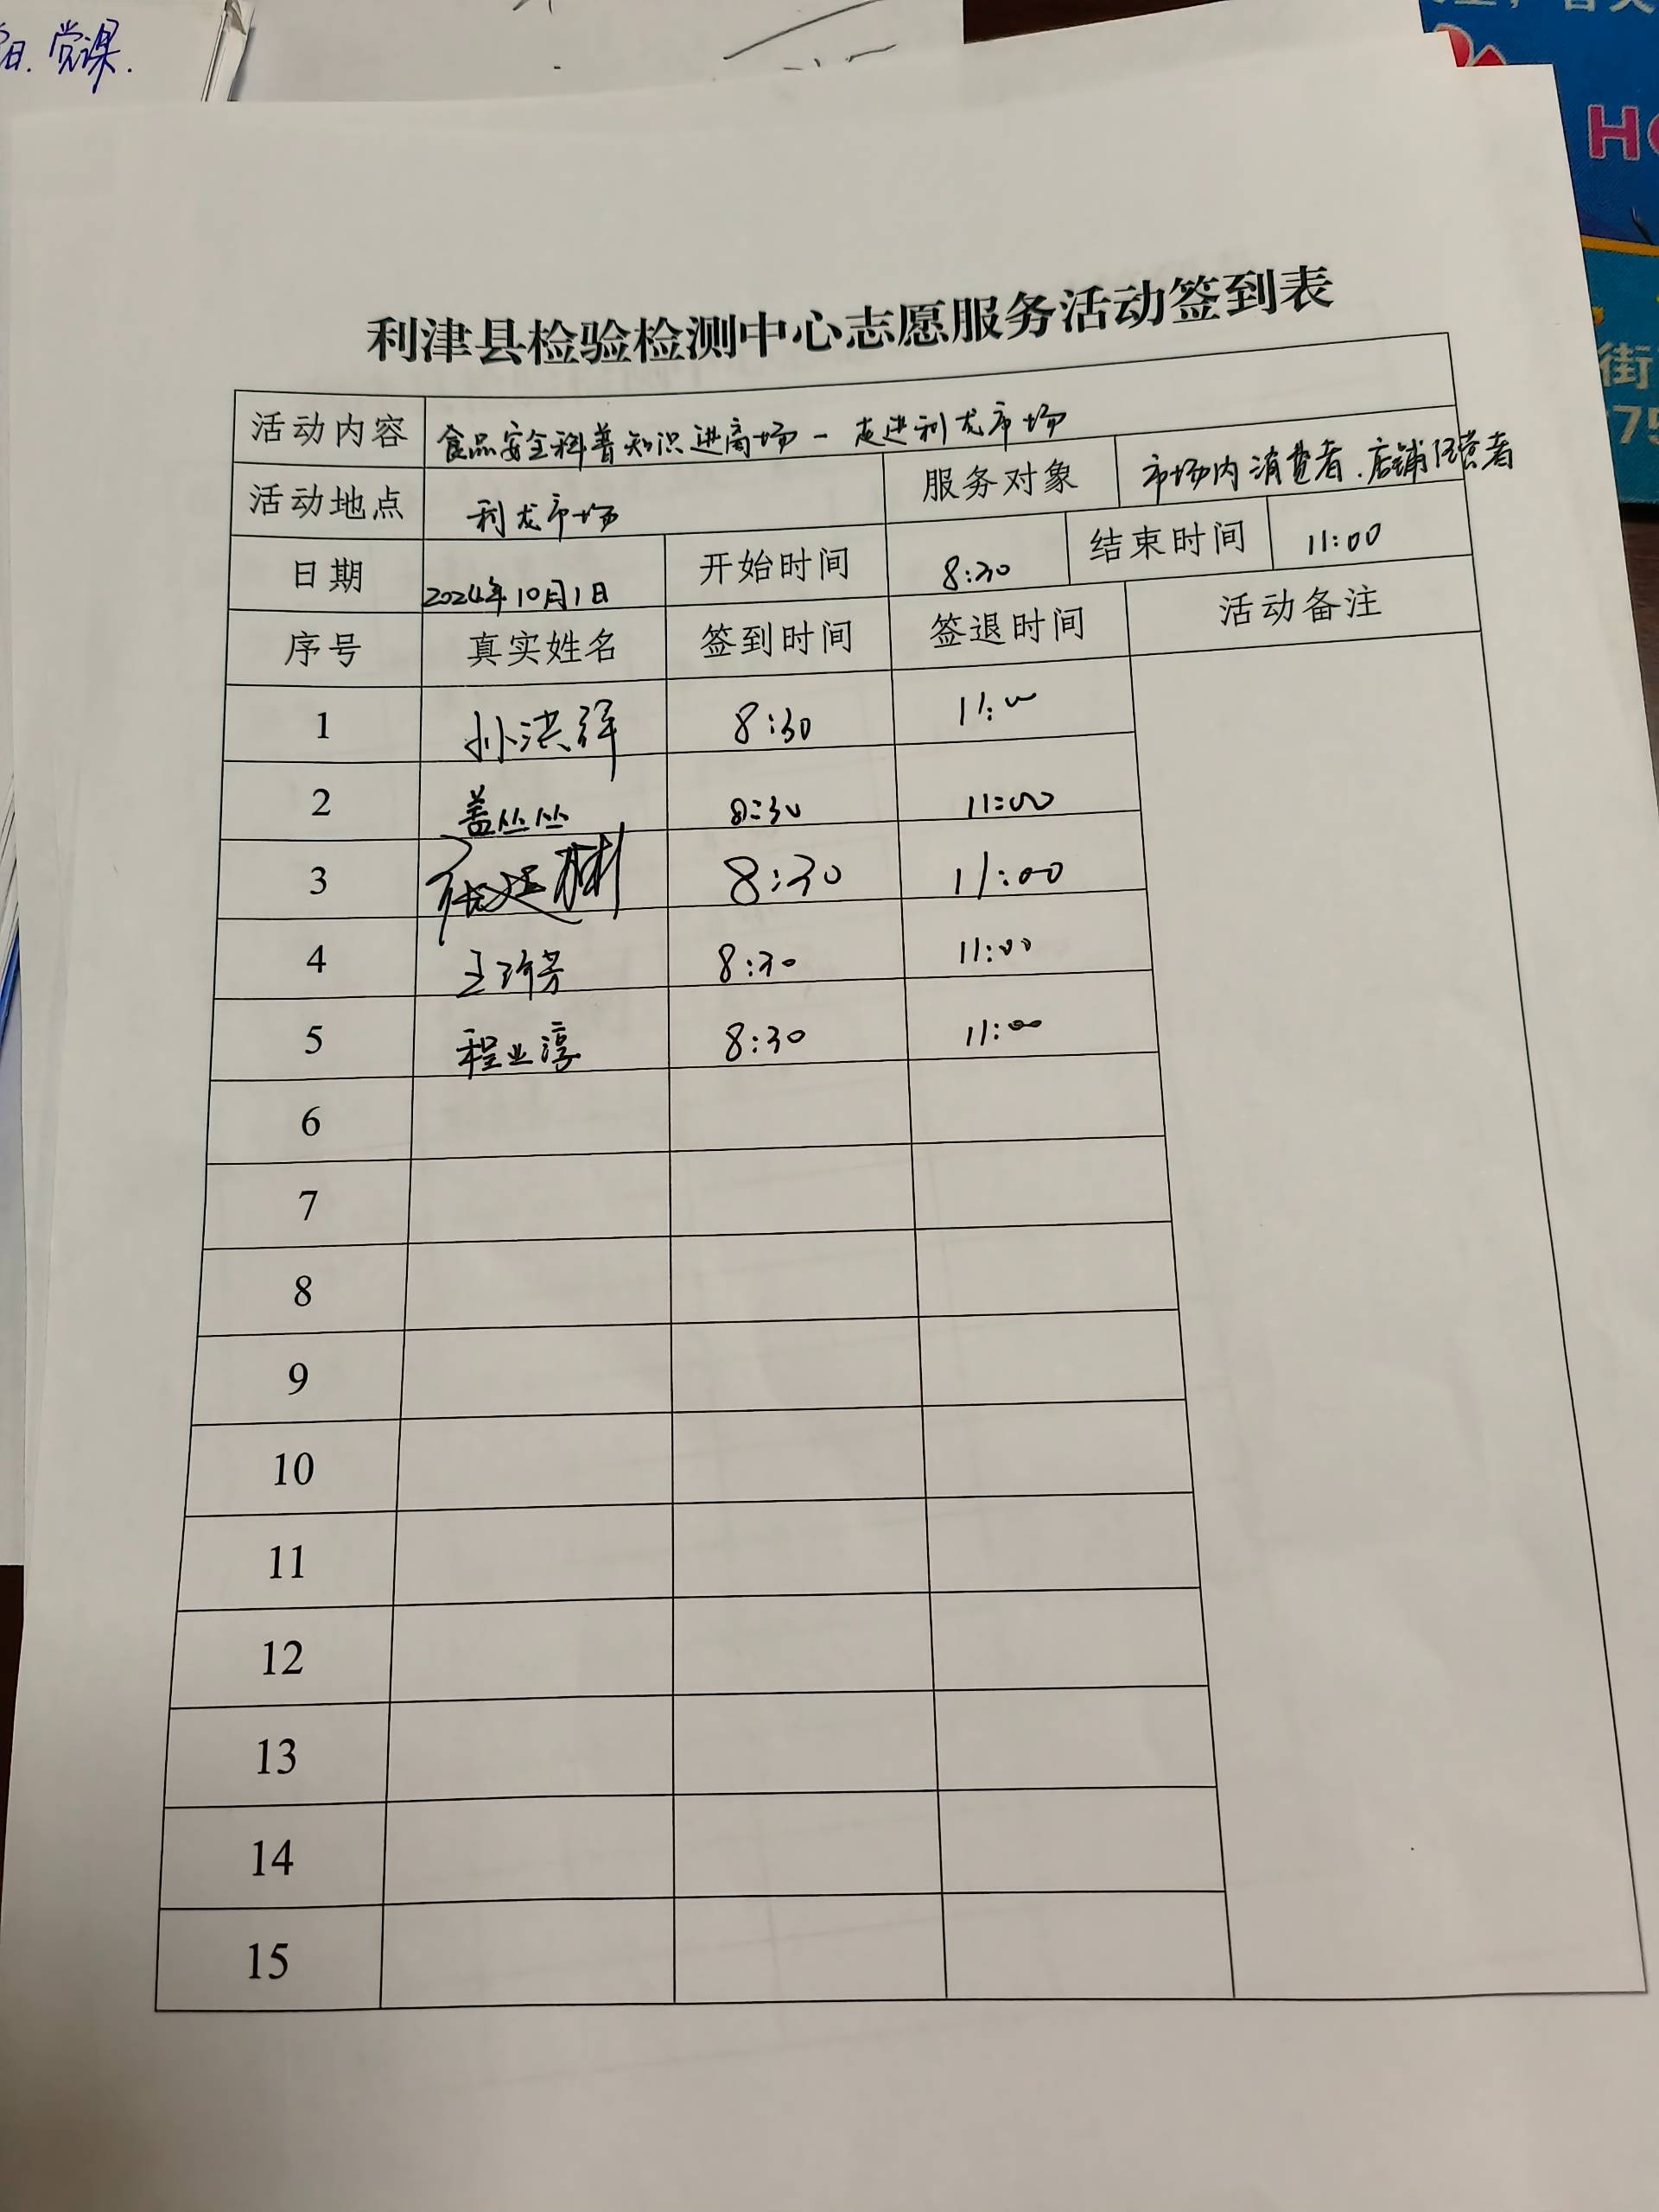 日.党课.
HO
街
75
利津县检验检测中心志愿服务活动签到表
活动内容 食品安全科普知识进商场-走进利龙市场
活动地点 利龙市场 服务对象 市场内消费者.店铺经营者
日期 2024年10月1日 开始时间 8:30 结束时间 11:00
序号 真实姓名 签到时间 签退时间 活动备注
1 孙洪祥 8:30 11:00
2 盖丛丛 8:30 11:00
3 8:30 11:00
4 8:30 11:00
5 程业淳 8:30 11:00
6
7
8
9
10
11
12
13
14
15